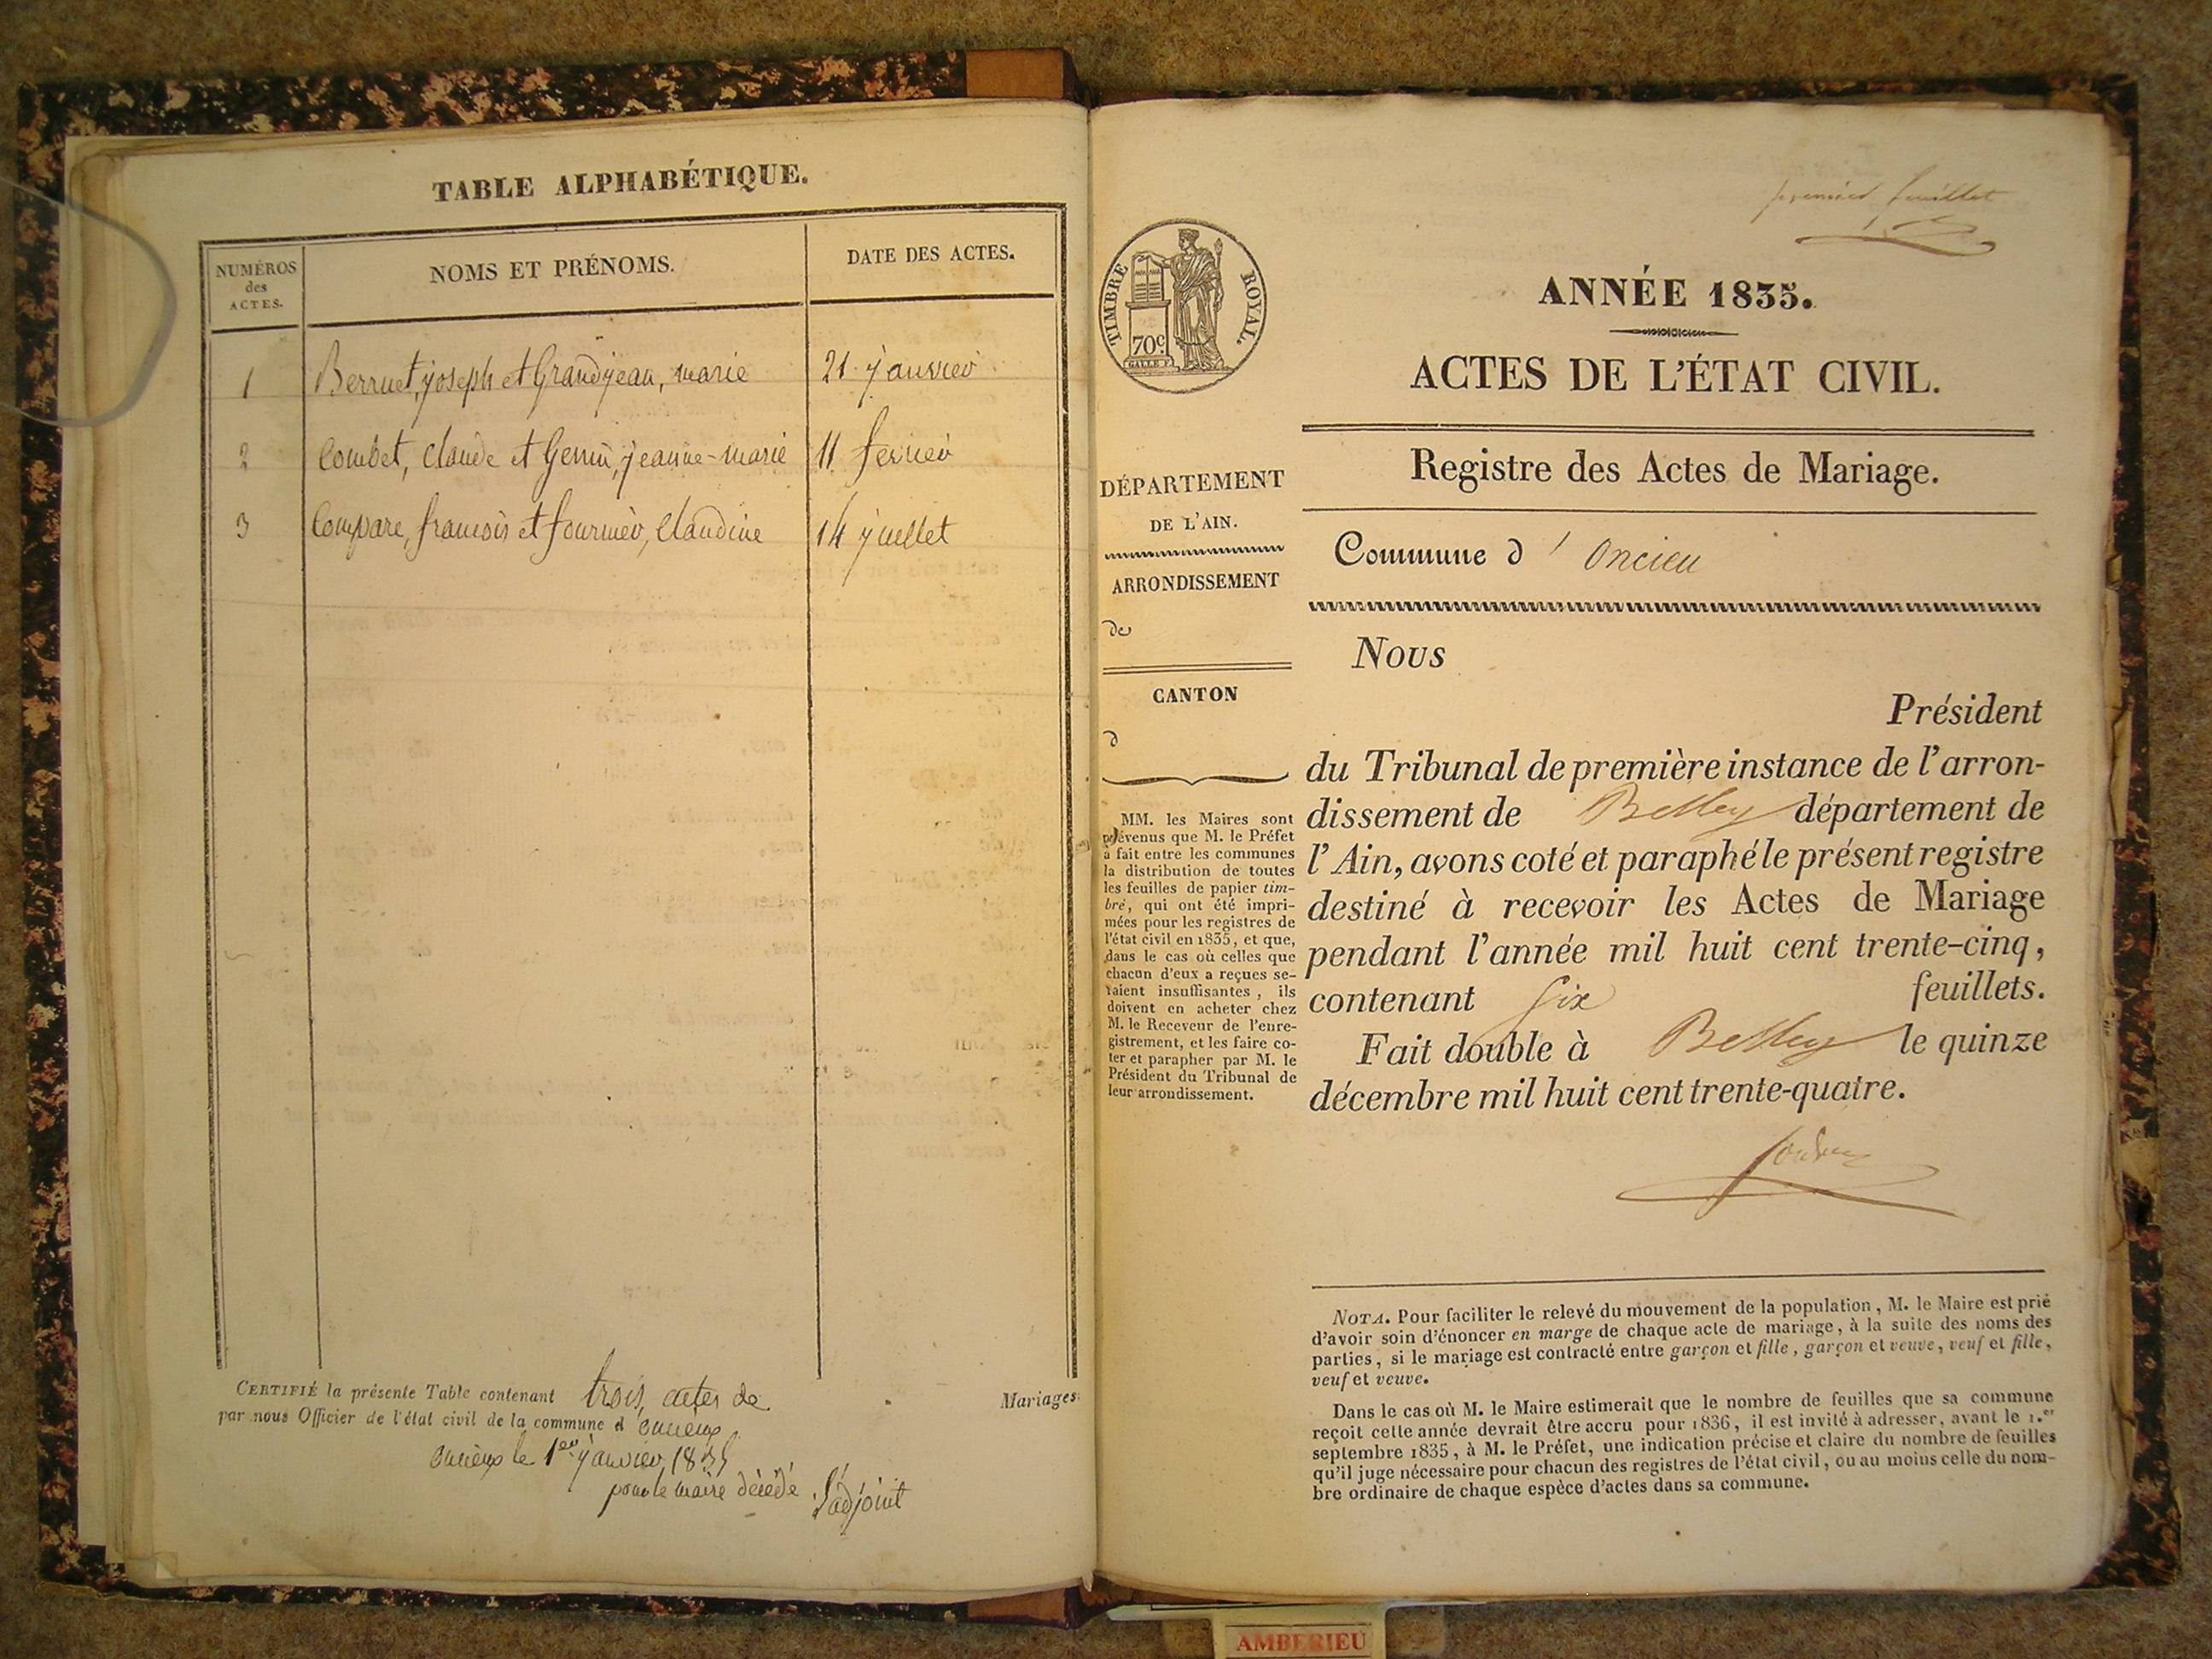 TABLE ALPHABÉTIQUE.
NUMÉROS
des
ACTES.
NOMS ET PRÉNOMS.
DATE DES ACTES.
1 Berruet, joseph et Grandjean, marie 21 janvier
2 Combet, claude et Genin, jeanne-marie 11 fevrier
3 Compare, francois et fournier, Claudine 14 juillet
CERTIFIÉ la présente Table contenant trois actes de Mariages
par nous Officier de l'état civil de la commune d'oncieux
oncieux le 1er janvier 1835
pour le maire décédé L'adjoint
premier feuillet
TIMBRE ROYAL.
70c
GALLE F.
ANNÉE 1835.
ACTES DE L'ÉTAT CIVIL.
Registre des Actes de Mariage.
Commune d' Oncieu
DÉPARTEMENT
DE L'AIN.
ARRONDISSEMENT
de
CANTON
d
MM. les Maires sont
prévenus que M. le Préfet
a fait entre les communes
la distribution de toutes
les feuilles de papier tim-
bré, qui ont été impri-
mées pour les registres de
l'état civil en 1835, et que,
dans le cas où celles que
chacun d'eux a reçues se-
raient insuffisantes, ils
doivent en acheter chez
M. le Receveur de l'enre-
gistrement, et les faire co-
ter et parapher par M. le
Président du Tribunal de
leur arrondissement.
Nous
Président
du Tribunal de première instance de l'arron-
dissement de Belley département de
l'Ain, avons coté et paraphé le présent registre
destiné à recevoir les Actes de Mariage
pendant l'année mil huit cent trente-cinq,
contenant Six feuillets.
Fait double à Belley le quinze
décembre mil huit cent trente-quatre.
NOTA. Pour faciliter le relevé du mouvement de la population, M. le Maire est prié
d'avoir soin d'énoncer en marge de chaque acte de mariage, à la suite des noms des
parties, si le mariage est contracté entre garçon et fille, garçon et veuve, veuf et fille,
veuf et veuve.
Dans le cas où M. le Maire estimerait que le nombre de feuilles que sa commune
reçoit cette année devrait être accru pour 1836, il est invité à adresser, avant le 1.er
septembre 1835, à M. le Préfet, une indication précise et claire du nombre de feuilles
qu'il juge nécessaire pour chacun des registres de l'état civil, ou au moins celle du nom-
bre ordinaire de chaque espèce d'actes dans sa commune.
AMBERIEU